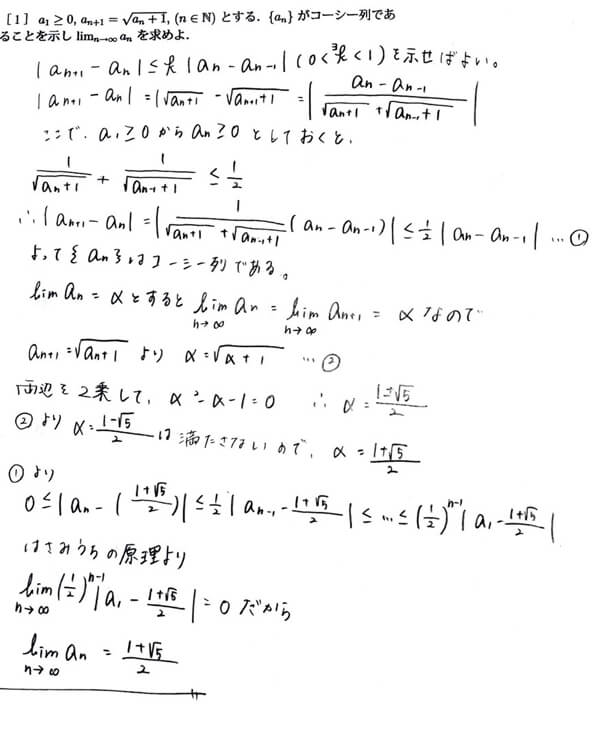 ［1］ a₁ ≥ 0, aₙ₊₁ = √(aₙ + 1), (n ∈ ℕ) とする. {aₙ} がコーシー列であ
ることを示し limₙ→∞ aₙ を求めよ.
|aₙ₊₁ - aₙ| ≤ k |aₙ - aₙ₋₁| (0 < ∃k < 1) を示せばよい。
|aₙ₊₁ - aₙ| = |√(aₙ+1) - √(aₙ₋₁+1) = | (aₙ - aₙ₋₁)/(√(aₙ+1) + √(aₙ₋₁+1)) |
ここで、a₁ ≥ 0 から aₙ ≥ 0 としておくと、
1/√(aₙ+1) + 1/√(aₙ₋₁+1) ≤ 1/2
∴ |aₙ₊₁ - aₙ| = | 1/(√(aₙ+1) + √(aₙ₋₁+1)) (aₙ - aₙ₋₁) | ≤ 1/2 |aₙ - aₙ₋₁| … ①
よって {aₙ} はコーシー列である。
lim aₙ = α とすると lim n→∞ aₙ = lim n→∞ aₙ₊₁ = α なので
aₙ₊₁ = √(aₙ+1) より α = √(α+1) … ②
両辺を2乗して、α² - α - 1 = 0 ∴ α = (1±√5)/2
② より α = (1-√5)/2 は満たさないので、α = (1+√5)/2
① より
0 ≤ |aₙ - ((1+√5)/2)| ≤ 1/2 |aₙ₋₁ - (1+√5)/2| ≤ … ≤ (1/2)ⁿ⁻¹ |a₁ - (1+√5)/2|
はさみうちの原理より
lim n→∞ (1/2)ⁿ⁻¹ |a₁ - (1+√5)/2| = 0 だから
lim n→∞ aₙ = (1+√5)/2